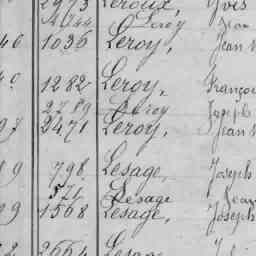 2973 Leroux, Yves
1744 Leroy Jean
46 1036 Leroy, Jean
1282 Leroy, Françoi
2789 Leroy Joseph
97 2471 Leroy, Jean
9 798 Lesage, Joseph
574 Lesage Jean
99 1568 Lesage, Joseph
2664 Lesag